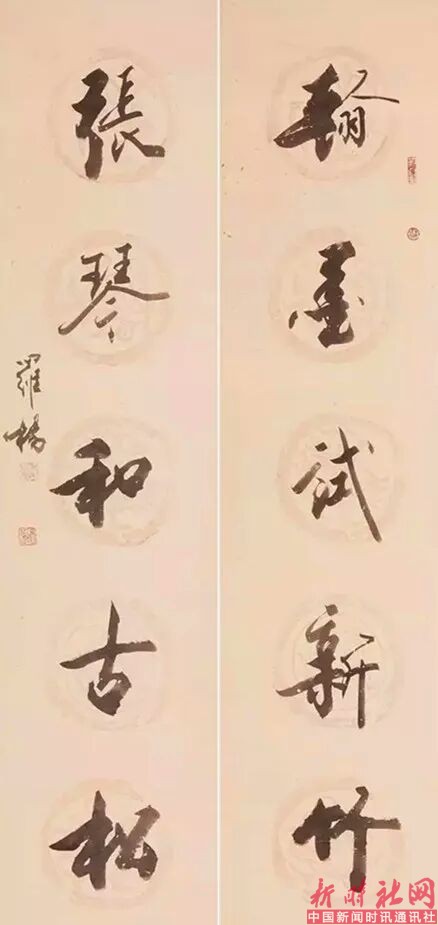 翰墨試新竹
張琴和古松
羅楊
新時社网
中国新闻时讯通讯社